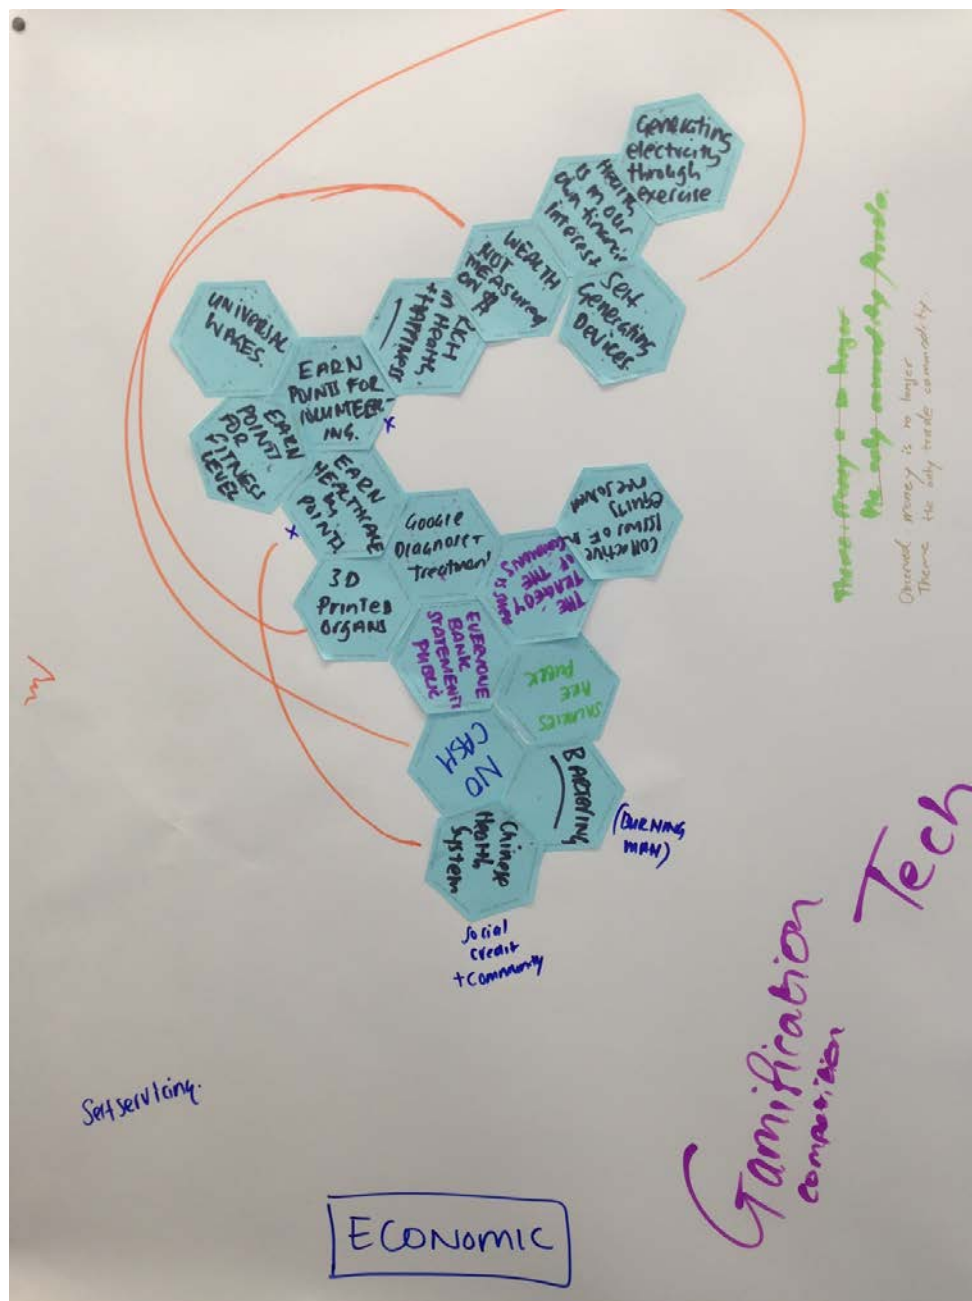 Generating
electricity
through
exercise
Health
is in our
own financial
interest
Self
Generating
Devices.
WEALTH
NOT
MEASURED
ON $
RICH
in Health
+ HAPPINESS
UNIVERSAL
WAGES.
EARN
POINTS FOR
VOLUNTEER-
ING.
x
EARN
POINTS
FOR
FITNESS
LEVEL
EARN
HEALTHCARE
by
POINTS
x
Google
Diagnose +
Treatment
3D
Printed
Organs
Collective
ISSUES OF
EQUITY
are solved
THE
TRAGEDY
OF THE
COMMONS IS
EVERYONE
BANK
STATEMENTS
PUBLIC
SALARIES
ARE
PUBLIC
NO
CASH
BARTERING
(BURNING
MAN)
Chinese
Health
System
Social
Credit
+ Community
Theme: Money is no longer
the only commodity
money is no longer
Theme the only trade commodity
Tech
Gamification
competition
Self servicing.
ECONOMIC